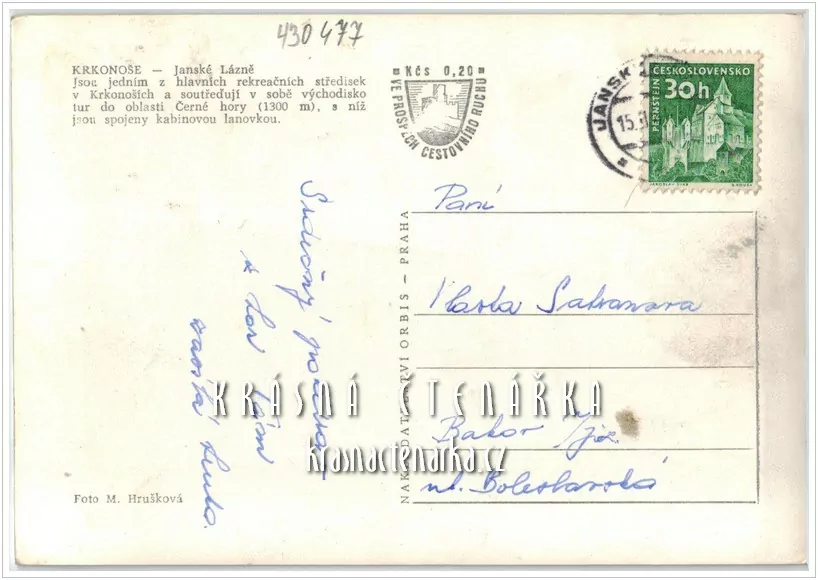 430 477
KRKONOŠE — Janské Lázně
Jsou jedním z hlavních rekreačních středisek
v Krkonoších a soutřeďují v sobě východisko
tur do oblasti Černé hory (1300 m), s níž
jsou spojeny kabinovou lanovkou.
Kčs 0,20
VE PROSPĚCH CESTOVNÍHO RUCHU
JANSK
15.
ČESKOSLOVENSKO
30h
PERNŠTEJN
JAROSLAV ŠVÁB
Srdečný
z
NAKLADATELSTVÍ ORBIS — PRAHA
Paní
Vlasta
Bakov n/Jiz
ul. Boleslavská
KRÁSNÁ ČTENÁŘKA
krasnactenarka.cz
Foto M. Hrušková